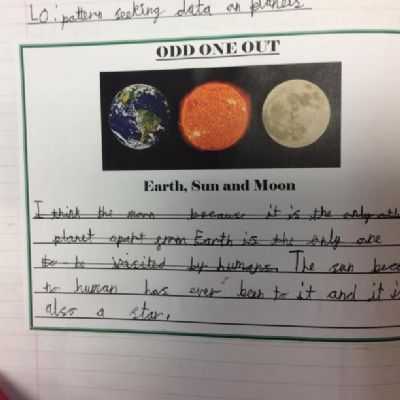 LO: pattern seeking data on planets
ODD ONE OUT
Earth, Sun and Moon
I think the moon because it is the only oth
planet apart from Earth is the only one
to be visited by humans. The sun beca
no human has ever been to it and it is
also a star.